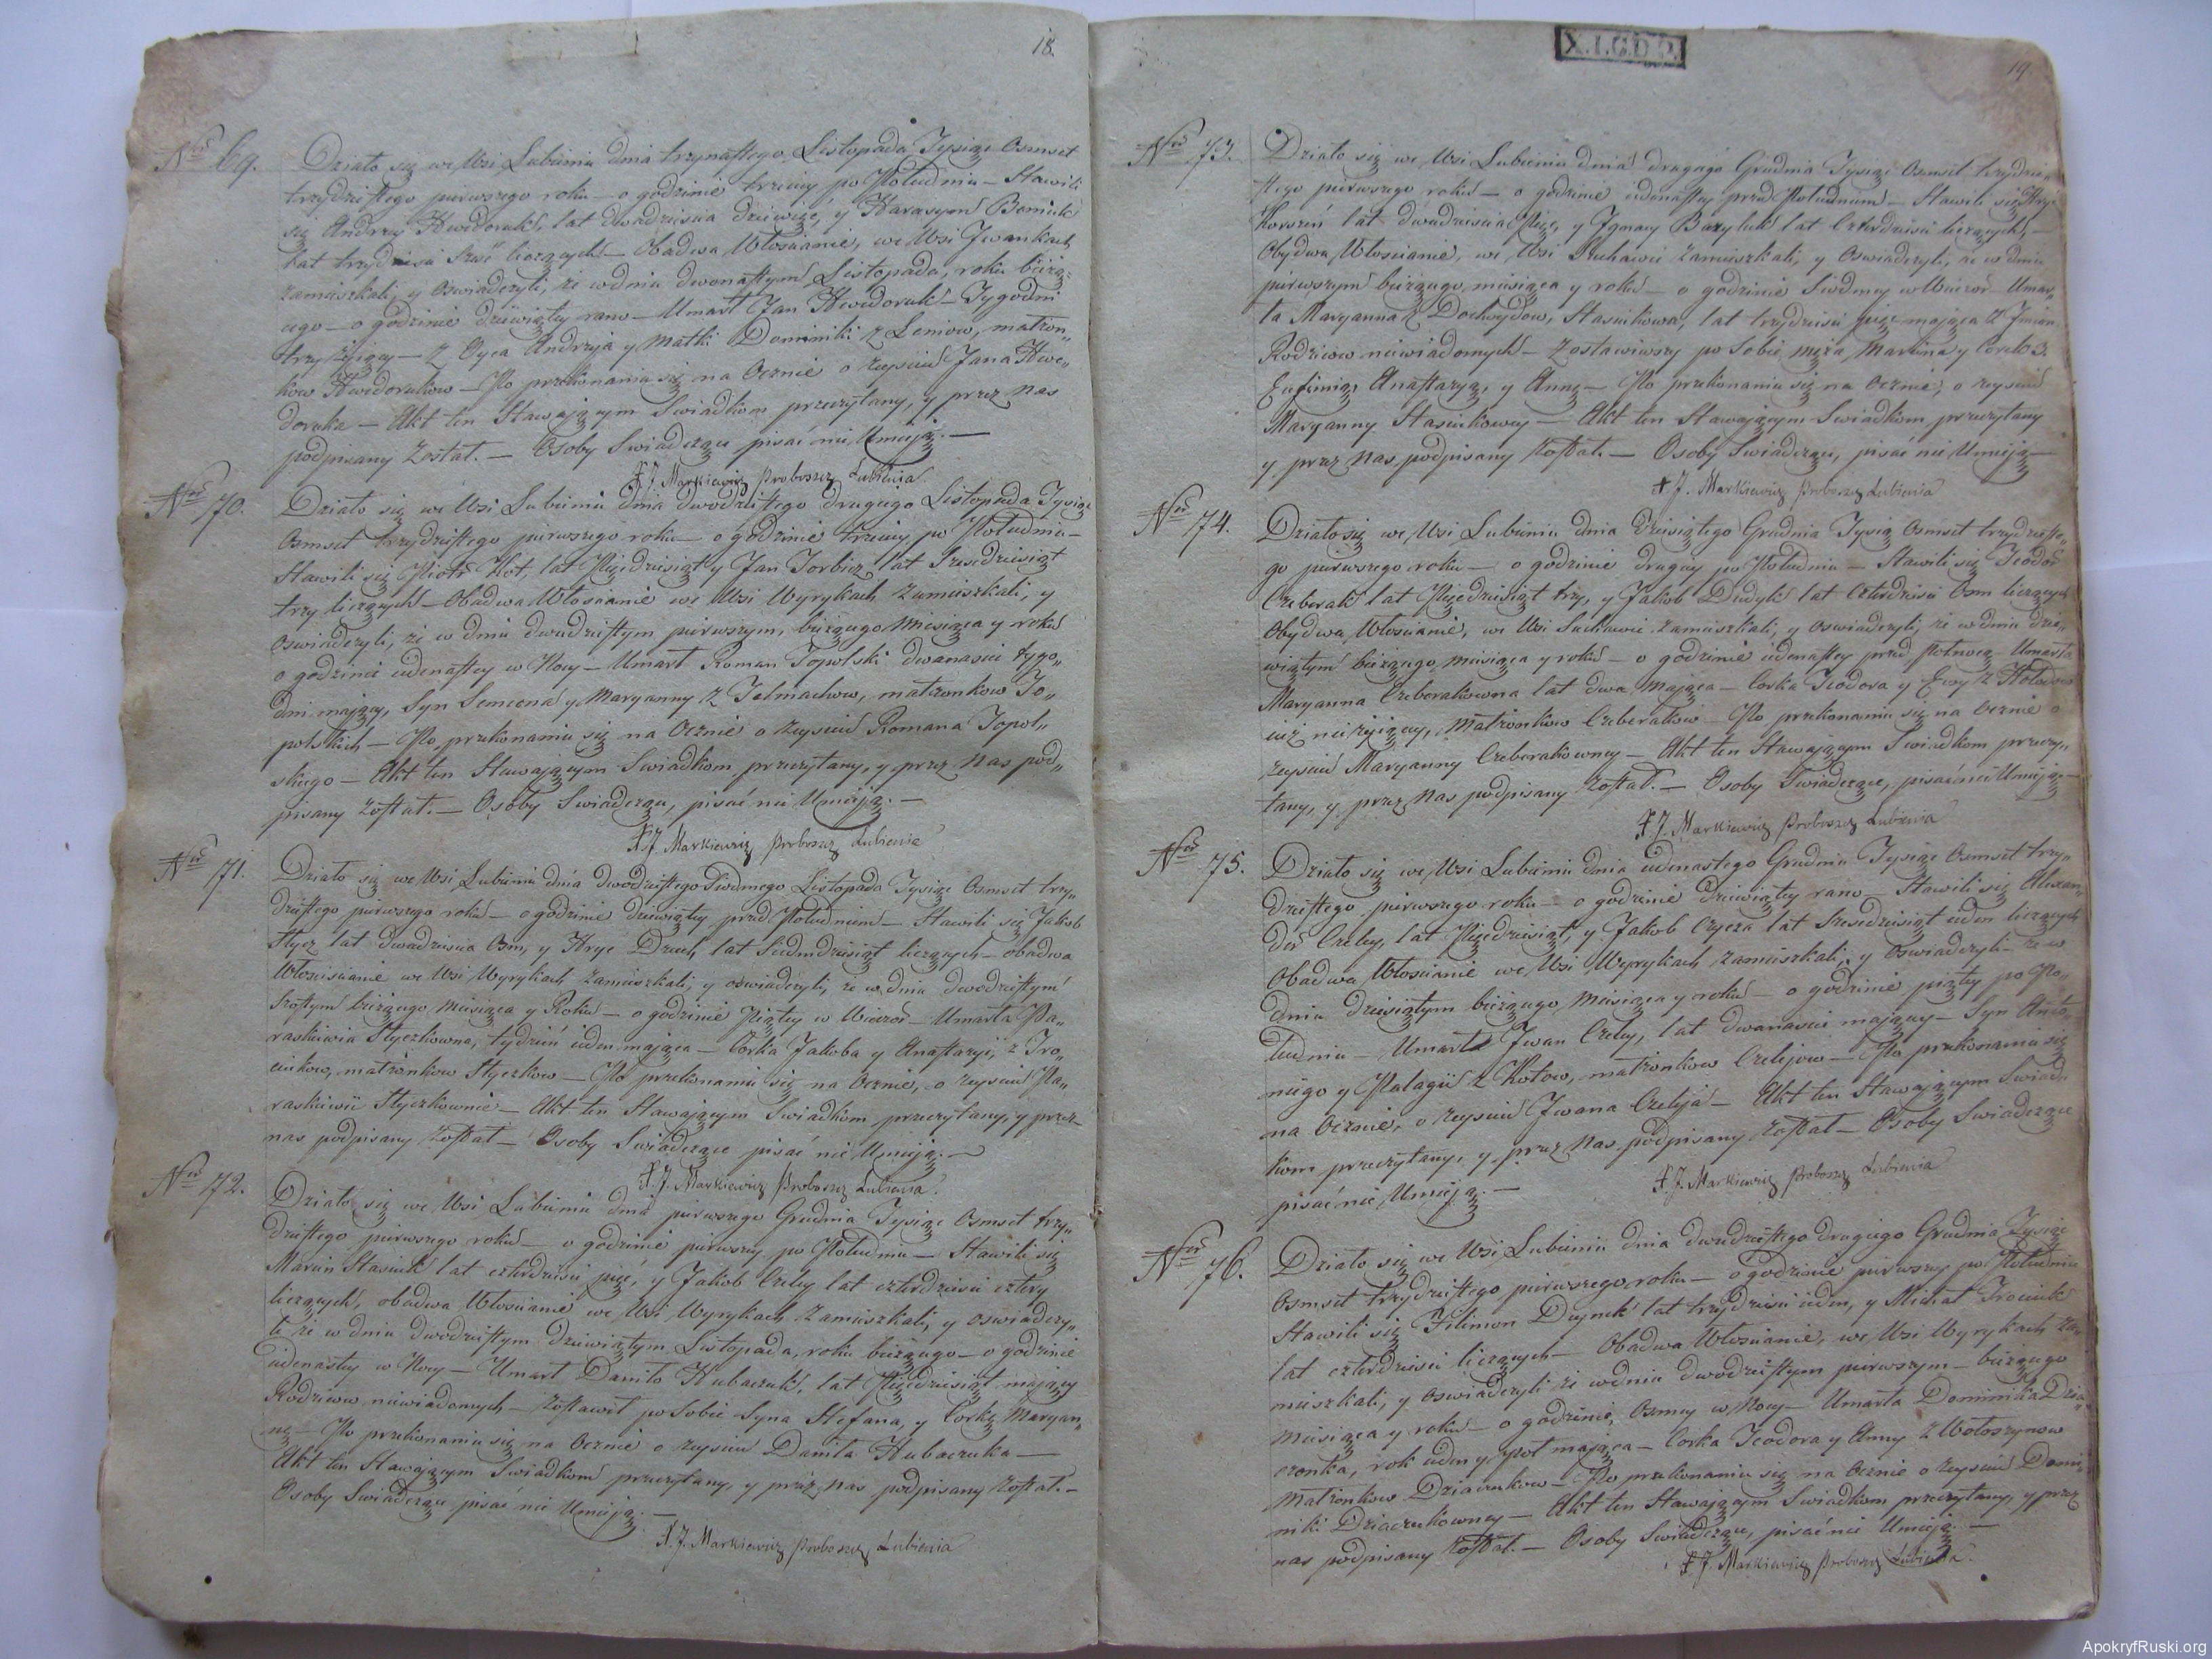 18.
Nro 69.
Działo się we Wsi Lubieniu dnia trzynastego Listopada Tysiąc Osmset
trzydziestego pierwszego roku — o godzinie trzeciey po Południu — Stawili
się Andrzey Hwedoruk, lat dwadzieścia dziewięć, y Harasym
lat trzydzieści liczących — Obadwa Włościanie, we Wsi Iwankach
zamieszkali, y Oświadczyli, że w dniu dwonastym Listopada, roku bieżą„
cego — o godzinie dziewiątey rano — Umarł Jan Hwedoruk — Tygodni
trzy żyjący — z Oyca Andrzeja y Matki Dominiki z Leniow, małżon„
kow Hwedorukow — Po przekonaniu się na Ocznie o zeysciu Jana Hwe„
doruka — Akt ten Stawającym Swiadkom przeczytany, y przez nas
podpisany Został. — Osoby Swiadczące pisać nie Umieją. —
X J. Markiewicz Proboszcz Lubienia
Nro 70.
Działo się we Wsi Lubieniu dnia dwodziestego drugiego Listopada Tysiąc
Osmset trzydziestego pierwszego roku — o godzinie trzeciey po Południu —
Stawili się Piotr Kot, lat Pięćdziesiąt y Jan Torbicz lat Sześćdziesiąt
trzy liczących — Obadwa Włościanie we Wsi Wyrykach Zamieszkali, y
Oswiadczyli, że w dniu dwudziestym pierwszym, bieżącego Miesiąca y roku
o godzinie iedenastey w Nocy — Umarł Roman Topolski dwanascie tygo„
dni mający, Syn Semeona y Maryanny z Telmachow, małżonkow To„
polskich — Po przekonaniu się na Ocznie o zeysciu Romana Topol„
skiego — Akt ten Stawającym Swiadkom przeczytany, y przez Nas pod„
pisany Został. — Osoby Swiadczące, pisać nie Umieją. —
X J Markiewicz Proboszcz Lubienia
Nro 71.
Działo się we Wsi Lubieniu dnia dwodziestego Siodmego Listopada Tysiąc Osmset trzy„
dziestego pierwszego roku — o godzinie dziewiątey przed Południem — Stawili się Jakob
Stycz lat dwadziescia Osm, y Hryc Dzuch, lat Siedmdziesiąt liczących — obadwa
Włościanie we Wsi Wyrykach zamieszkali, y oswiadczyli, że w dniu dwodziestym
Szostym bieżącego Miesiąca y Roku — o godzinie Piątey w Wieczor — Umarła Pa„
raskiewia Styczkowna, tydzień ieden mająca — Corka Jakoba y Anastazyi z Tro„
ciukow, małżonkow Styczkow — Po przekonaniu się na Ocznie, o zeysciu Pa„
raskiewii Styczkownie — Akt ten Stawającym Swiadkom przeczytany, y przez
nas podpisany Został — Osoby Swiadczące pisać nie Umieją. —
X. J. Markiewicz Proboszcz Lubienia.
Nro 72.
Działo się we Wsi Lubieniu dnia pierwszego Grudnia Tysiąc Osmset trzy„
dziestego pierwszego roku — o godzinie pierwszey po Południu — Stawili się
Marcin Stasiuk lat czterdziesci pięć, y Jakob Czeley lat czterdziesci cztery
liczących, obadwa Włościanie we Wsi Wyrykach Zamieszkali, y oswiadczy„
li że w dniu dwodziestym dziewiątym Listopada, roku bieżącego — o godzinie
iedenastey w Nocy — Umarł Daniło Hubaczuk, lat Pięćdziesiąt mający
Rodzicow niewiadomych — Zostawił po Sobie Syna Stefana, y Corkę Maryan„
nę — Po przekonaniu się na Ocznie o zeysciu Daniła Hubaczuka —
Akt ten Stawającym Swiadkom przeczytany, y przez nas podpisany Został. —
Osoby Swiadczące pisać nie Umieją. —
X. J. Markiewicz Proboszcz Lubienia
X.I.C.D.P.
19.
Nro 73.
Działo się we Wsi Lubieniu dnia drugiego Grudnia Tysiąc Osmset trzydzie„
stego pierwszego roku — o godzinie iedenastey przed Południem — Stawili się Hryc
Korszeń lat dwadziescia Pięć, y Ignacy Bazyluk lat Czterdziesci liczących, —
Obydwa Włościanie, we Wsi Suchawie Zamieszkali, y Oswiadczyli, że w dniu
pierwszym bieżącego, miesiąca y roku — o godzinie Siodmey w Wieczor — Umar„
ła Maryanna z Stasiukowa, lat trzydziesci pięć mająca z Imion
Rodzicow niewiadomych — Zostawiwszy po Sobie męża Marcina y Corek 3.
Eufimią, Anastazyą, y Annę — Po przekonaniu się na Ocznie, o zeysciu
Maryanny Stasiukowey — Akt ten Stawającym Swiadkom przeczytany
y przez Nas podpisany Został. — Osoby Swiadczące, pisać nie Umieją —
X J. Markiewicz Proboszcz Lubienia
Nro 74.
Działo się we Wsi Lubieniu dnia Dziesiątego Grudnia Tysiąc Osmset trzydzieste„
go pierwszego roku — o godzinie drugiey po Południu — Stawili się Teodor
Czeberak lat Pięćdziesiąt trzy, y Jakob Dudyk lat Czterdziesci Osm liczących
Obydwa Włościanie, we Wsi Suchawie zamieszkali, y oswiadczyli, że w dniu dzie„
wiątym bieżącego, miesiąca y roku — o godzinie iedenastey przed północą — Umarła
Maryanna Czeberakowna lat dwa mająca — Corka Teodora y Ewy z
iuż nie żyjącey, Małżonkow Czeberakow — Po przekonaniu się na Ocznie o
zeysciu Maryanny Czeberakowney — Akt ten Stawającym Swiadkom przeczy„
tany, y przez Nas podpisany Został. — Osoby Swiadczące, pisać nie Umieją —
X. J. Markiewicz Proboszcz Lubienia
Nro 75.
Działo się we Wsi Lubieniu dnia iedenastego Grudnia Tysiąc Osmset trzy„
dziestego pierwszego roku — o godzinie dziewiątey rano — Stawili się Alexan„
der Czeley, lat Pięćdziesiąt, y Jakob Czycza lat Szescdziesiąt ieden liczących
Obadwa Włościanie we Wsi Wyrykach Zamieszkali, y Oswiadczyli — że w
dniu dziesiątym bieżącego Miesiąca y roku — o godzinie piątey po Po„
łudniu — Umarł Iwan Czeley, lat dwanascie mający — Syn Anto„
niego y Palagii z Kotow, małżonkow Czelejow — Po przekonaniu się
na Ocznie, o zeysciu Iwana Czeleja — Akt ten Stawającym Swiad„
kom przeczytany, y przez Nas podpisany Został — Osoby Swiadczące
pisać nie Umieją. —
X J. Markiewicz Proboszcz Lubienia
Nro 76.
Działo się we Wsi Lubieniu dnia dwudziestego drugiego Grudnia Tysiąc
Osmset trzydziestego pierwszego roku — o godzinie pierwszey po Południu
Stawili się Filimon Deynek lat trzydziesci ieden, y Michał Trociuk
lat czterdziesci liczących — Obadwa Włościanie, we Wsi Wyrykach Za„
mieszkali, y oswiadczyli że w dniu dwodziestym pierwszym — bieżącego
Miesiąca y roku — o godzinie, Osmey w Nocy — Umarła Dominika Dzia„
czonka, rok ieden y poł mająca — Corka Teodora y Anny z Wołoszynow
Małżonkow Dziaczukow — Po przekonaniu się na Ocznie o zeysciu Domi„
niki Dziaczukowney — Akt ten Stawającym Swiadkom przeczytany, y przez
nas podpisany Został. — Osoby Swiadczące, pisać nie Umieją. —
X J. Markiewicz Proboszcz Lubienia.
ApokryfRuski.org